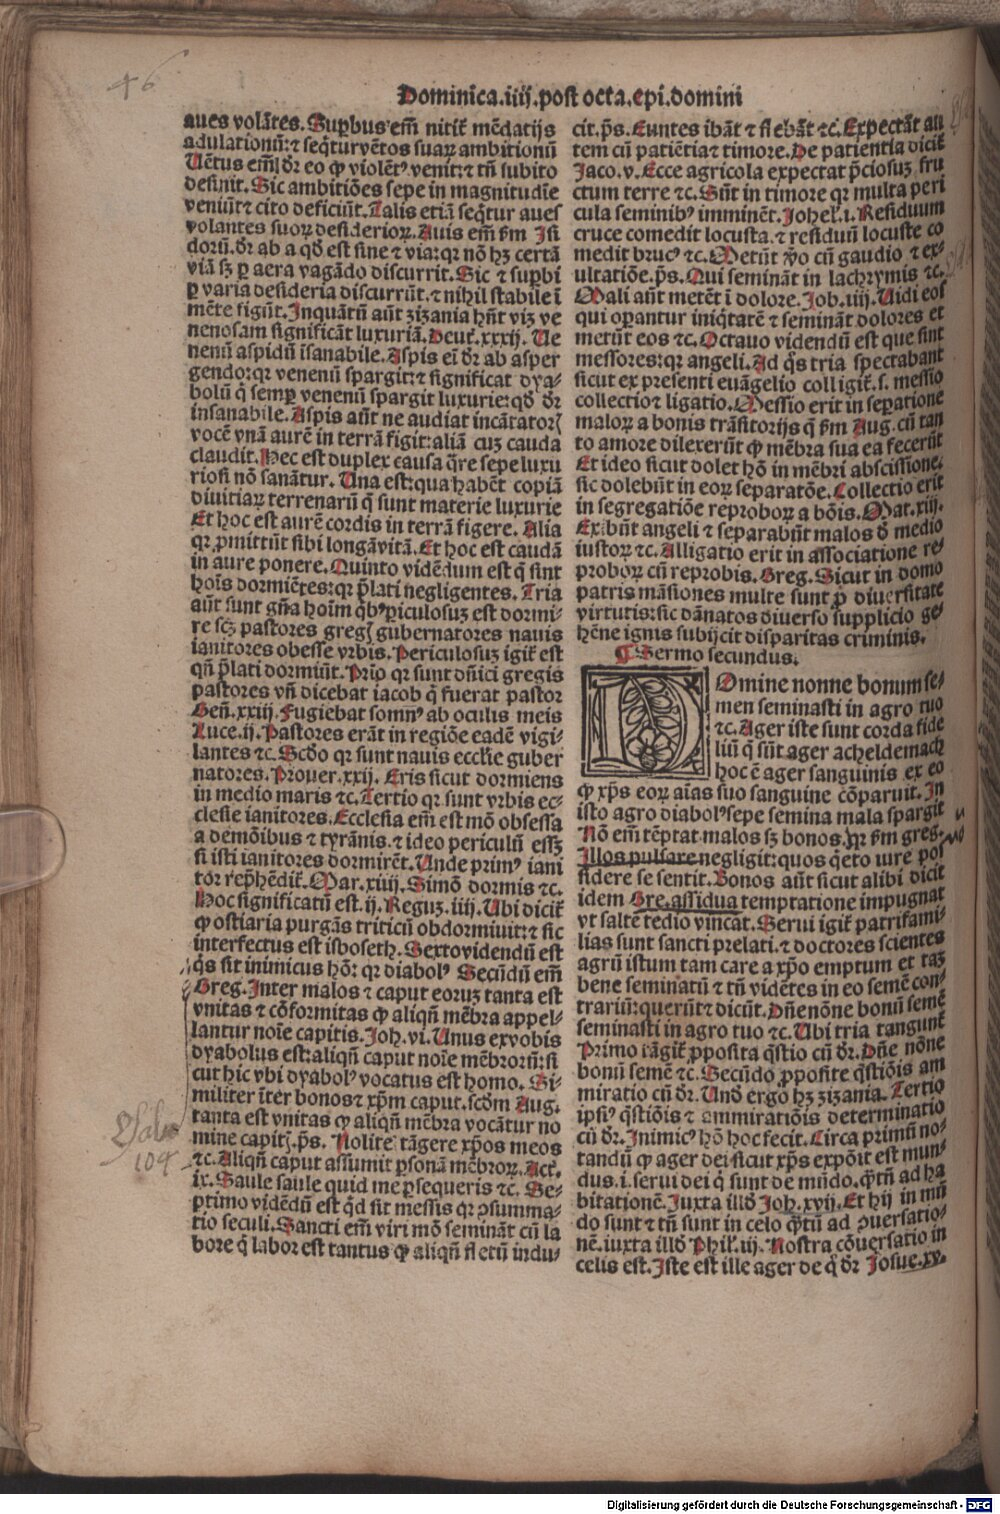 46
Dominica.iiij.post octa.epi.domini
aues volãtes.Suꝑbus em̃ nitit᷑ mẽdatijs
adulationũ:⁊ seq̃tur vẽtos suaꝝ ambitionũ
Uẽtus em̃ dr̃ eo ꝙ violẽtꝰ venit:⁊ tñ subito
definit.Sic ambitiões sepe in magnitudĩe
veniũt⁊ cito deficiũt.Talis etiã seq̃tur aues
volantes suoꝝ desiderioꝝ.Auis em̃ ẜm Isi
dorũ.dr̃ ab a qd̃ est sine ⁊ via:qꝛ nõ hꝫ certã
viã sꝫ ꝑ aera vagãdo discurrit.Sic ⁊ suꝑbi
ꝑ varia desideria discurrũt.⁊ nihil stabile ĩ
mẽte figũt.Inquãtũ aũt zizania hñt viꝫ ve
nenosam significãt luxuriã.Deut̃.xxxij.Ue
nenũ aspidũ ĩsanabile.Aspis eĩ dr̃ ab asper
gendo:qꝛ venenũ spargit:⁊ significat dya⸗
bolũ q̃ semꝑ venenũ spargit luxurie:qd̃ dr̃
insanabile.Aspis aũt ne audiat incãtatoꝝ
vocẽ vnã aurẽ in terrã figit:aliã cuꝫ cauda
claudit.Hec est duplex causa q̃re sepe luxu
riosi nõ sanãtur.Una est:qua habẽt copiã
diuitiaꝝ terrenarũ q̃ sunt materie luxurie
Et hoc est aurẽ cordis in terrã figere.Alia
qꝛ ꝓmittũt sibi longã vitã.Et hoc est caudã
in aure ponere.Quinto vidẽdum est q̃ sint
hoĩs dormiẽtes:qꝛ p̃lati negligentes.Tria
aũt sunt gñra hoĩm q̃bꝰ ꝑiculosuꝫ est dormi⸗
re scꝫ pastores gregꝭ gubernatores nauis
ianitores obesse vrbis.Periculosuꝫ igit᷑ est
qñ p̃lati dormiũt.Prĩo qꝛ sunt dñici gregis
pastores vñ dicebat iacob q̃ fuerat pastor
Geñ.xxiij.Fugiebat somnꝰ ab oculis meis
Luce.ij.Pastores erãt in regiõe eadẽ vigi⸗
lantes ⁊c.Scd̃o qꝛ sunt nauis eccl̃ie guber
natores.Prouer.xxij.Eris sicut dormiens
in medio maris ⁊c.Tertio qꝛ sunt vrbis ec⸗
clesie ianitores.Ecclesia em̃ est mõ obsessa
a demõibus ⁊ tyrãnis.⁊ ideo periculũ essꝫ
si isti ianitores dormirẽt.Unde primꝰ iani
tor rep̃hẽdit᷑.Mar.xiiij.Simõ dormis ⁊c.
Hoc significatũ est.ij.Reguꝫ.iiij.Ubi dicit᷑
ꝙ ostiaria purgãs triticũ obdormiuit:⁊ sic
interfectus est isboseth.Sexto videndũ est
q̃s sit inimicus hõ: qꝛ diabolꝰ Secũdũ em̃
Greg.Inter malos ⁊ caput eoruꝫ tanta est
vnitas ⁊ cõformitas ꝙ aliqñ mẽbra appel⸗
lantur noĩe capitis.Joh.vi.Unus ex vobis
dyabolus est:aliqñ caput noĩe mẽbrorũ:si
cut hic vbi dyabolꝰ vocatus est homo.Si⸗
militer ĩter bonos⁊ xp̃m caput.scd̃m Aug.
tanta est vnitas ꝙ aliqñ mẽbra vocãtur no
mine capitꝭ.p̃s.Nolite tãgere xp̃os meos
⁊c.Aliqñ caput assumit ꝑsonã mẽbroꝝ.Act̃.
ix.Saule saule quid me ꝑsequeris ⁊c.Se⸗
ptimo vidẽdũ est qd̃ sit messis qꝛ ꝯsumma⸗
tio seculi.Sancti em̃ viri mõ seminãt cũ la
bore q̃ labor est tantus ꝙ aliqñ fletũ indu⸗
Psalm
104
cit.p̃s.Euntes ibãt ⁊ flebãt ⁊c̃.Expectãt au
tem cũ patiẽtia⁊ timore.De patientia dicit᷑
Jaco.v.Ecce agricola expectat p̃ciosuꝫ fru
ctum terre ⁊c.Sũt in timore qꝛ multa peri
cula seminibꝰ imminẽt.Johel.i.Residuum
eruce comedit locusta.⁊ residuũ locuste co
medit brucꝰ ⁊c.Metũt v̊o cũ gaudio ⁊ ex⸗
ultatiõe.p̃s.Qui seminãt in lachrymis ⁊c.
Mali aũt metẽt ĩ dolore.Job.iiij.Uidi eos
qui oꝑantur iniq̃tatẽ ⁊ seminãt dolores et
metũt eos ⁊c.Octauo videndũ est que sint
messores:qꝛ angeli.Ad q̃s tria spectabant
sicut ex presenti euãgelio colligit᷑.s.messio
collectio⁊ ligatio.Messio erit in seꝑatione
maloꝝ a bonis trãsitorijs q̃ ẜm Aug.cũ tan
to amore dilexerũt ꝙ mẽbra sua ea fecerũt
Et ideo sicut dolet hõ in mẽbri abscissione.
sic dolebũt in eoꝝ separatõe.Collectio erit
in segregatiõe reproboꝝ a bõis.Mat.xiij.
Exibũt angeli ⁊ separabũt malos d̃ medio
iustoꝝ ⁊c.Alligatio erit in associatione re⸗
proboꝝ cũ reprobis.Greg.Sicut in domo
patris mãsiones multe sunt ꝓ diuersitate
virtutis:sic dãnatos diuerso supplicio ge⸗
hẽne ignis subijcit disparitas criminis.
¶ Sermo secundus.
DOmine nonne bonum se⸗
men seminasti in agro tuo
⁊c.Ager iste sunt corda fide
liũ q̃ sũt ager acheldemach
hoc ẽ ager sanguinis ex eo
ꝙ xp̃s eoꝝ aĩas suo sanguine cõparuit.In
isto agro diabolꝰ sepe semina mala spargit
Nõ em̃ tẽptat malos sꝫ bonos.qꝛ ẜm greg.
Illos pulsare negligit:quos q̃eto iure pos
sidere se sentit.Bonos aũt sicut alibi dicit
idem Gre.assidua temptatione impugnat
vt saltẽ tedio vincat.Serui igit᷑ patrisfami⸗
lias sunt sancti prelati.⁊ doctores scientes
agrũ istum tam care a xp̃o emptum et taꝫ
bene seminatũ ⁊ tñ vidẽtes in eo semẽ con⸗
trariũ:querũt⁊ dicũt.Dñe nõne bonũ semẽ
seminasti in agro tuo ⁊c.Ubi tria tangunt᷑
Primo tãgit᷑ ꝓposita q̃stio cũ dr̃.Dñe nõne
bonũ semẽ ⁊c.Secũdo ꝓposite q̃stiõis am
miratio cũ dr̃.Und̃ ergo hꝫ zizania.Tertio
ipsiꝰ q̃stiõis ⁊ ammiratiõis determinatio
cũ dr̃.Inimicꝰ hõ hoc fecit.Circa primũ no⸗
tandũ ꝙ ager dei sicut xp̃s expõit est mun⸗
dus.i.serui dei q̃ sunt de mũdo.q̃tũ ad ha
bitationẽ.Juxta illd̃ Joh.xvij.Et hij in mũ
do sunt ⁊ tñ sunt in celo q̃tũ ad ꝯuersatio⸗
nẽ.iuxta illd̃ Phil̃.iij.Nostra cõuersatio in
celis est.Iste est ille ager de q̃ dr̃ Josue.xv.
Digitalisierung gefördert durch die Deutsche Forschungsgemeinschaft - DFG